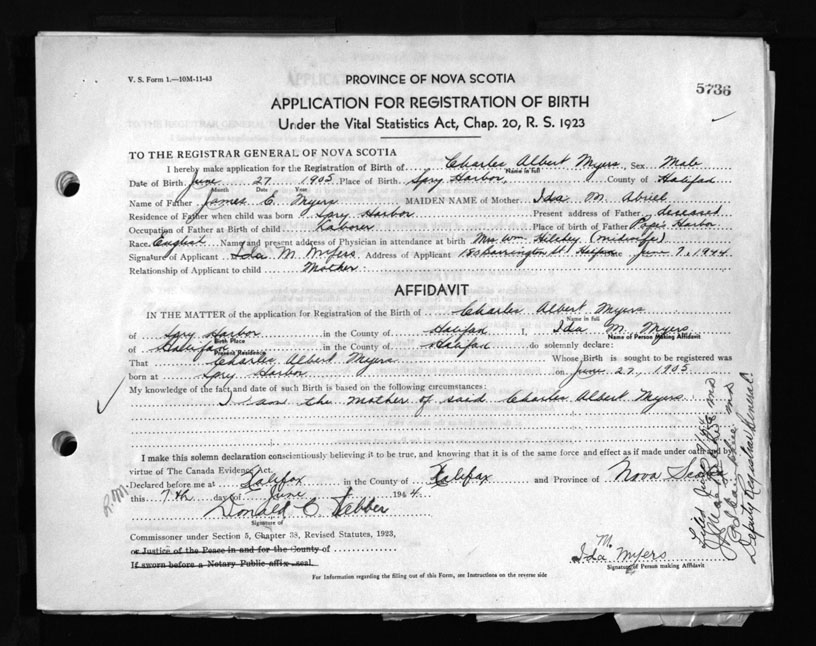 V. S. Form 1.—10M-11-43
PROVINCE OF NOVA SCOTIA
5736
APPLICATION FOR REGISTRATION OF BIRTH
Under the Vital Statistics Act, Chap. 20, R. S. 1923
TO THE REGISTRAR GENERAL OF NOVA SCOTIA
I hereby make application for the Registration of Birth of Charles Albert Myers, Sex Male
Name in full
Date of Birth June 27 1905 Place of Birth Spry Harbor, County of Halifax
Month Day Year
Name of Father James C. Myers MAIDEN NAME of Mother Ida M. Abriel
Residence of Father when child was born Spry Harbor Present address of Father deceased
Occupation of Father at Birth of child Laborer Place of birth of Father Popes Harbor
Race English Name and present address of Physician in attendance at birth Mrs Wm Hilchey (midwife)
Signature of Applicant Ida M. Myers Address of Applicant Barrington St Halifax June 7, 1944
Relationship of Applicant to child Mother
AFFIDAVIT
IN THE MATTER of the application for Registration of the Birth of Charles Albert Myers
Name in full
of Spry Harbor in the County of Halifax I, Ida M. Myers
Birth Place Name of Person Making Affidavit
of Halifax in the County of Halifax do solemnly declare:
Present Residence
That Charles Albert Myers Whose Birth is sought to be registered was
born at Spry Harbor on June 27, 1905
My knowledge of the fact and date of such Birth is based on the following circumstances:
I am the mother of said Charles Albert Myers.
I make this solemn declaration conscientiously believing it to be true, and knowing that it is of the same force and effect as if made under oath and by
virtue of The Canada Evidence Act.
Declared before me at Halifax in the County of Halifax and Province of Nova Scotia
this 7th day of June 1944.
R.M.
Donald C. Webber
Signature of
Commissioner under Section 5, Chapter 38, Revised Statutes, 1923,
or Justice of the Peace in and for the County of
If sworn before a Notary Public affix seal
Ida M. Myers
Signature of Person making Affidavit
For Information regarding the filling out of this Form, see Instructions on the reverse side
Deputy Registrar General